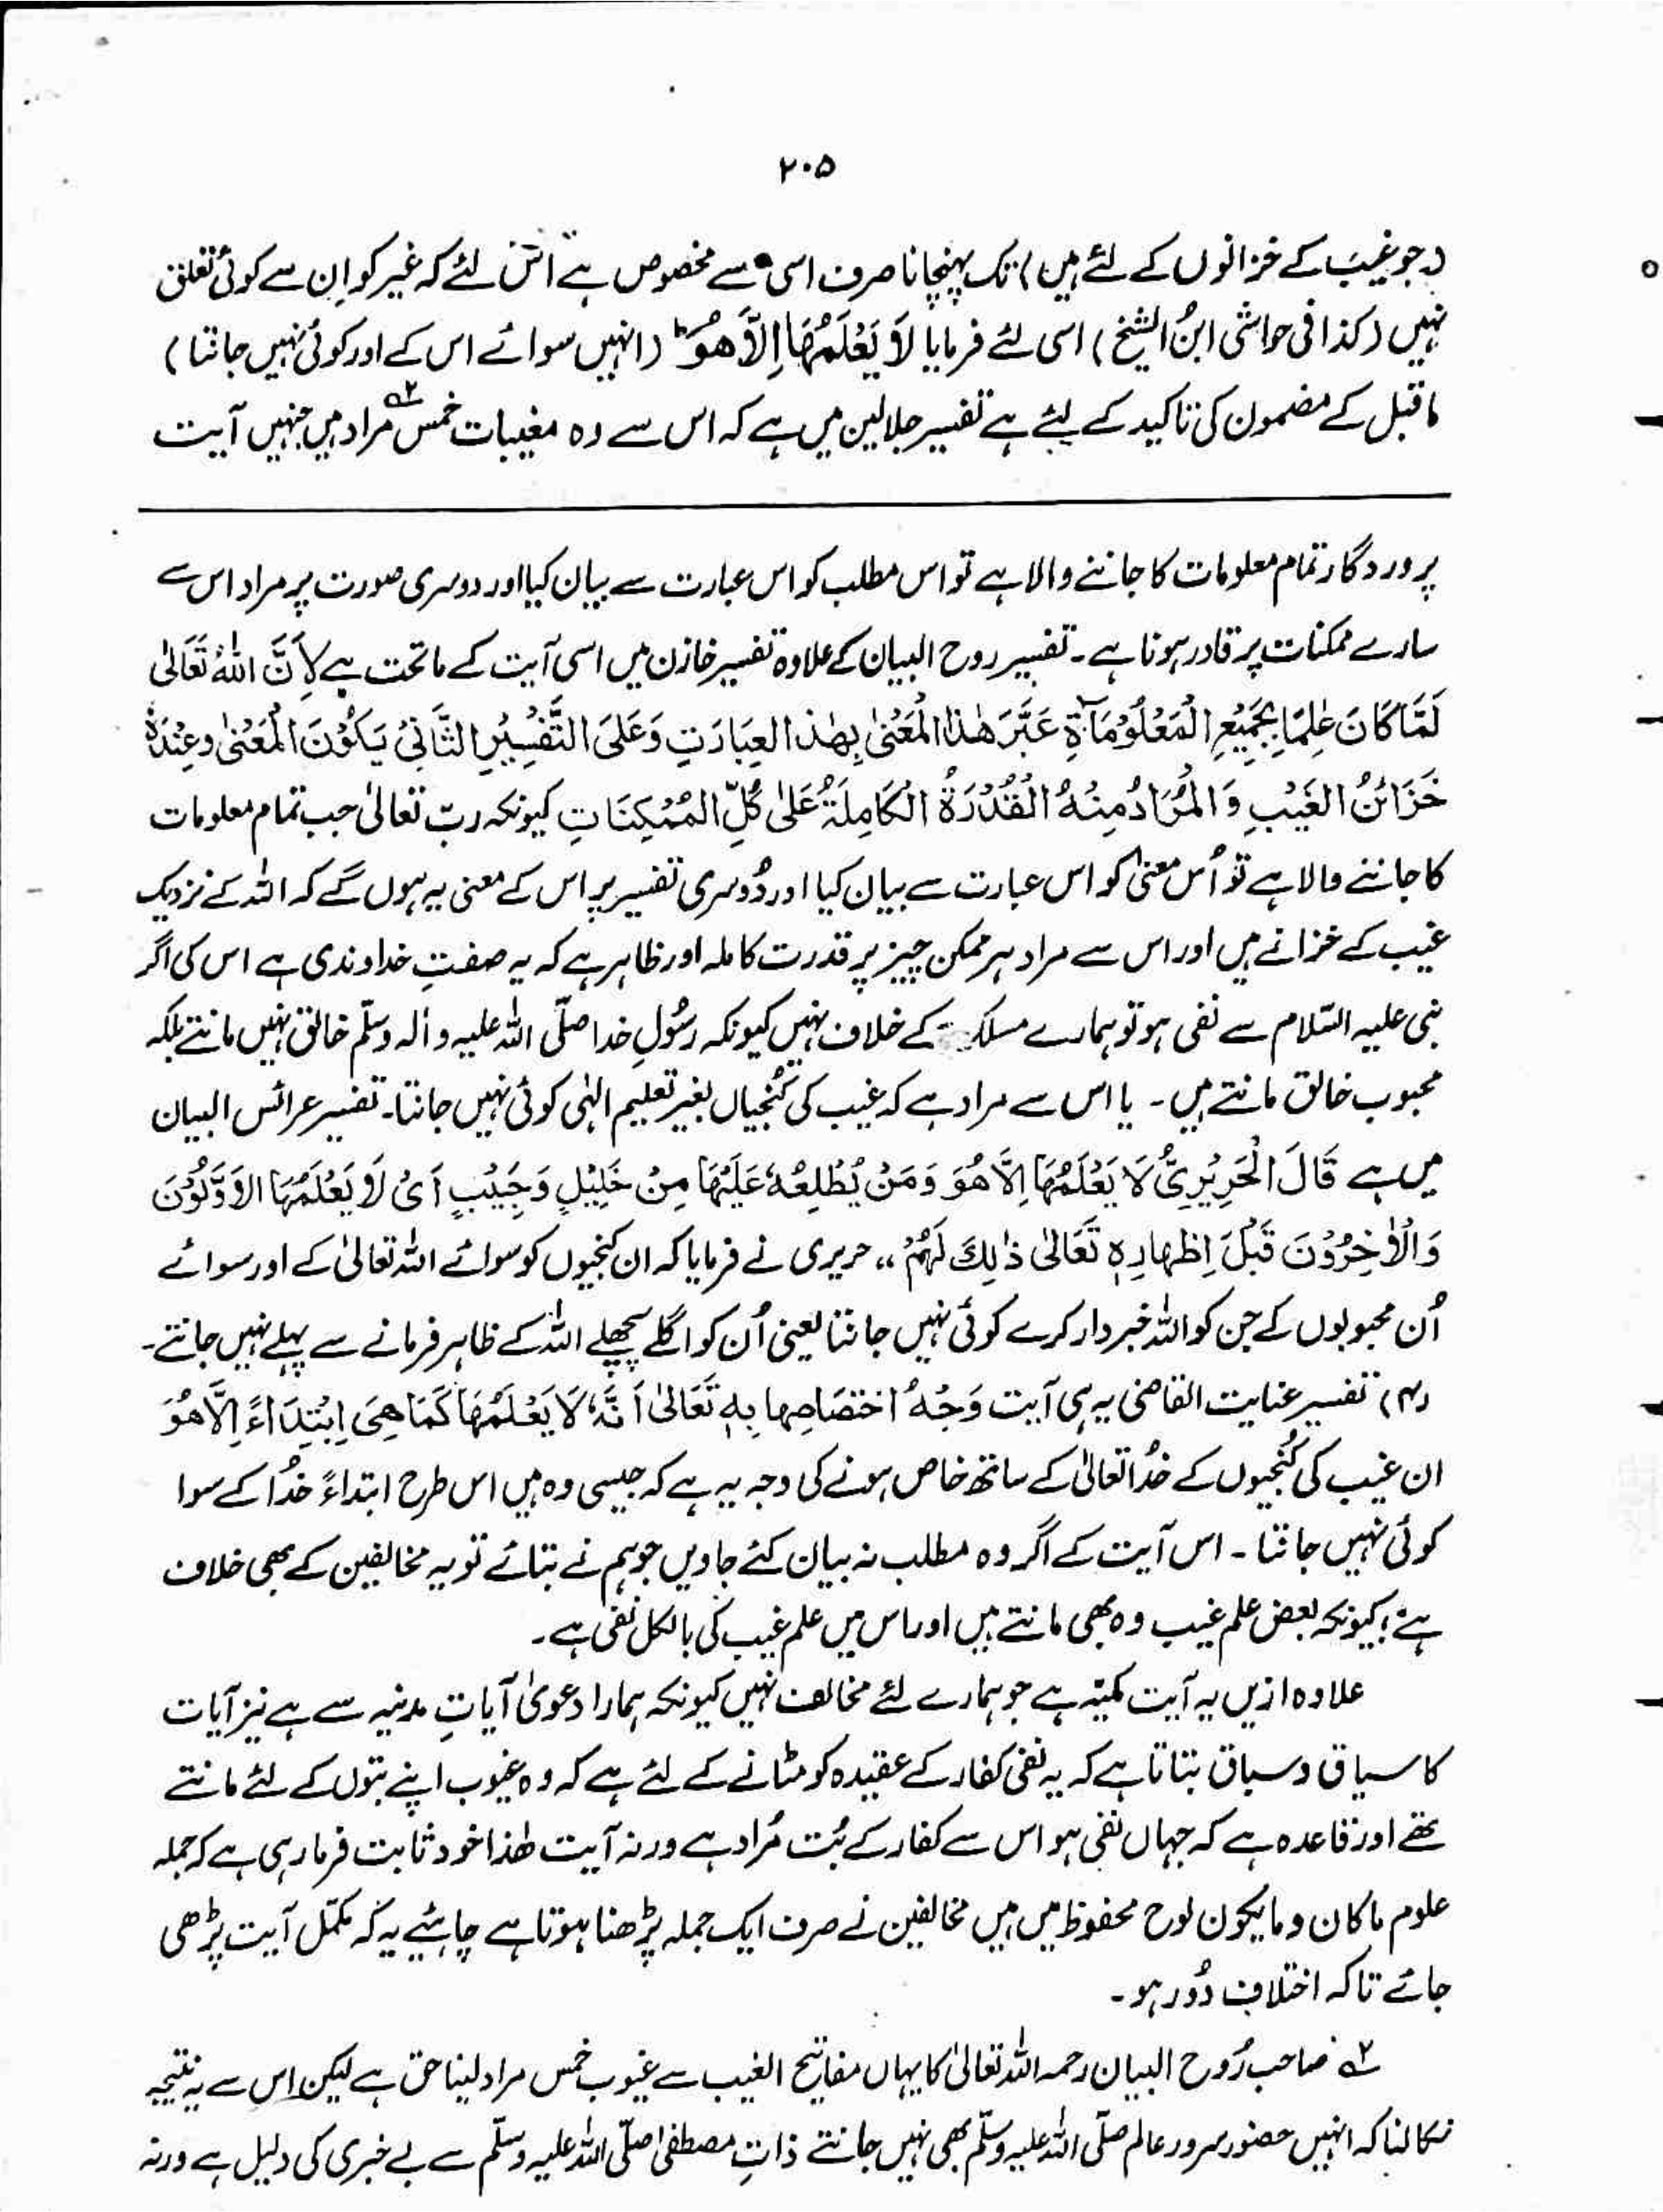 ۲۰۵
(جو غیب کے خزانوں کے لئے ہیں) تک پہنچانا صرف اسی سے مخصوص ہے اس لئے کہ غیر کو ان سے کوئی تعلق
نہیں (کذا فی حواشی ابنُ الشیخ) اسی لئے فرمایا لَا یَعْلَمُهَا اِلَّا هُوَ ؕ (انہیں سوائے اس کے اور کوئی نہیں جانتا)
ماقبل کے مضمون کی تاکید کے لئے ہے تفسیر جلالین میں ہے کہ اس سے وہ مغیبات خمس ؂۲ مراد ہیں جنہیں آیت
پروردگار تمام معلومات کا جاننے والا ہے تو اس مطلب کو اس عبارت سے بیان کیا اور دوسری صورت پر مراد اس سے
سارے ممکنات پر قادر ہونا ہے ۔ تفسیر روح البیان کے علاوہ تفسیر خازن میں اسی آیت کے ماتحت ہے لِاَنَّ اللهُ تَعَالٰی
لَمَّا كَانَ عٰلِمًا بِجَمِيْعِ الْمَعْلُوْمَاۤةِ عَبَّرَ هٰذَا الْمَعْنٰی بِهٰذَا العِبَارَتِ وَعَلَی التَّفْسِيْرِ الثَّانِیْ يَكُوْنَ الْمَعْنٰی وعِنْدَهٗ
خَزَائنُ الغَيْبِ وَالْمُرَادُ مِنْهُ الْقُدْرَةُ الْكَامِلَةُ عَلٰی كُلِّ المُمْكِنَاتِ کیونکہ ربّ تعالیٰ جب تمام معلومات
کا جاننے والا ہے تو اُس معنیٰ کو اس عبارت سے بیان کیا اور دُوسری تفسیر پر اس کے معنی یہ ہوں گے کہ اللہ کے نزدیک
غیب کے خزانے ہیں اور اس سے مراد ہر ممکن چیز پر قدرت کاملہ اور ظاہر ہے کہ یہ صفتِ خداوندی ہے اس کی اگر
نبی علیہ السّلام سے نفی ہو تو ہمارے مسلک کے خلاف نہیں کیونکہ رسُولِ خدا صلّی اللہ علیہ و اٰلہ وسلّم خالق نہیں مانتے بلکہ
محبوب خالق مانتے ہیں ۔ یا اس سے مراد ہے کہ غیب کی کُنجیاں بغیر تعلیم الہٰی کوئی نہیں جانتا۔ تفسیر عرائس البیان
میں ہے قَالَ الْحَرِيْرِیُّ لَا يَعْلَمُهَا اِلَّا هُوَ وَمَنْ يُطْلِعُهٗ عَلَيْهَا مِنْ خَلِيْلٍ وَحَبِيْبٍ اَیْ لَا يَعْلَمُهَا الاَوَّلُوْنَ
وَالْاٰخِرُوْنَ قَبْلَ اِظهارِهٖ تَعَالٰی ذٰلِكَ لَهُمْ ،، حریری نے فرمایا کہ ان کنجیوں کو سوائے اللہ تعالیٰ کے اور سوائے
اُن محبوبوں کے جن کو اللہ خبردار کرے کوئی نہیں جانتا یعنی اُن کو اگلے پچھلے اللہ کے ظاہر فرمانے سے پہلے نہیں جانتے۔
(۴) تفسیر عنایت القاضی یہ ہی آیت وَجْهُ اخْتصَاصِها بِهٖ تَعَالٰی اَنَّهٗ لَا يَعْلَمُهَا كَمَا هِیَ اِبْتِدَاءً اِلَّا هُوَ
ان غیب کی کُنجیوں کے خُدا تعالیٰ کے ساتھ خاص ہونے کی وجہ یہ ہے کہ جیسی وہ ہیں اس طرح ابتداءً خُدا کے سوا
کوئی نہیں جانتا ۔ اس آیت کے اگر وہ مطلب نہ بیان کئے جاویں جو ہم نے بتائے تو یہ مخالفین کے بھی خلاف
ہے؛ کیونکہ بعض علم غیب وہ بھی مانتے ہیں اور اس میں علم غیب کی بالکل نفی ہے ۔
علاوہ ازیں یہ آیت مکیّہ ہے جو ہمارے لئے مخالف نہیں کیونکہ ہمارا دعویٰ آیاتِ مدنیہ سے ہے نیز آیات
کا سیاق و سباق بتاتا ہے کہ یہ نفی کفار کے عقیدہ کو مٹانے کے لئے ہے کہ وہ غیوب اپنے بتوں کے لئے مانتے
تھے اور قاعدہ ہے کہ جہاں نفی ہو اس سے کفار کے بُت مُراد ہے ورنہ آیت ھٰذا خود ثابت فرما رہی ہے کہ جملہ
علوم ماکان و مایکون لوح محفوظ میں ہیں مخالفین نے صرف ایک جملہ پڑھنا ہوتا ہے چاہئیے یہ کہ مکمّل آیت پڑھی
جائے تاکہ اختلاف دُور ہو ۔
؂۲ صاحب رُوح البیان رحمہ اللہ تعالیٰ کا یہاں مفاتیح الغیب سے غیوب خمس مراد لینا حق ہے لیکن اس سے یہ نتیجہ
نکالنا کہ انہیں حضور سرور عالم صلّی اللہ علیہ وسلّم بھی نہیں جانتے ذاتِ مصطفیٰ صلّی اللہ علیہ وسلّم سے بے خبری کی دلیل ہے ورنہ